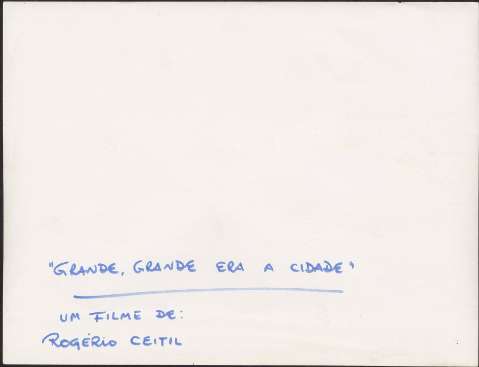 "GRANDE, GRANDE ERA A CIDADE"
UM FILME DE:
ROGÉRIO CEITIL